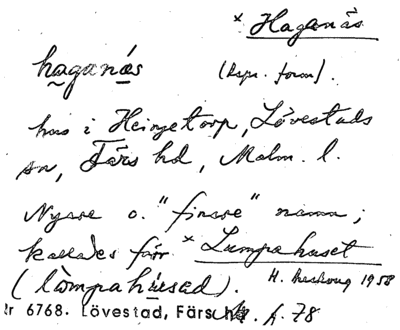 × Haganäs
haganäs (Rspr. form).
hus i Heingetorp, Lövestads
sn, Färs hd, Malm. l.
Nyare o. "finare" namn;
kallades förr × Lumpahuset
(lòmpahúsad). H. 1958
Nr 6768. Lövestad, Färs hd. A. 78